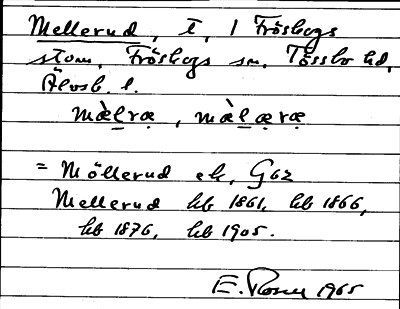 Mellerud, t, i Fröskogs
stom, Fröskogs sn. Tössbo hd,
Älvsb. l.
mæ̀l̠rạ, mæ̀l̠ạrạ
= Möllerud ek, G62
Mellerud hb 1861, hb 1866,
hb 1876, hb 1905.
E. 1965